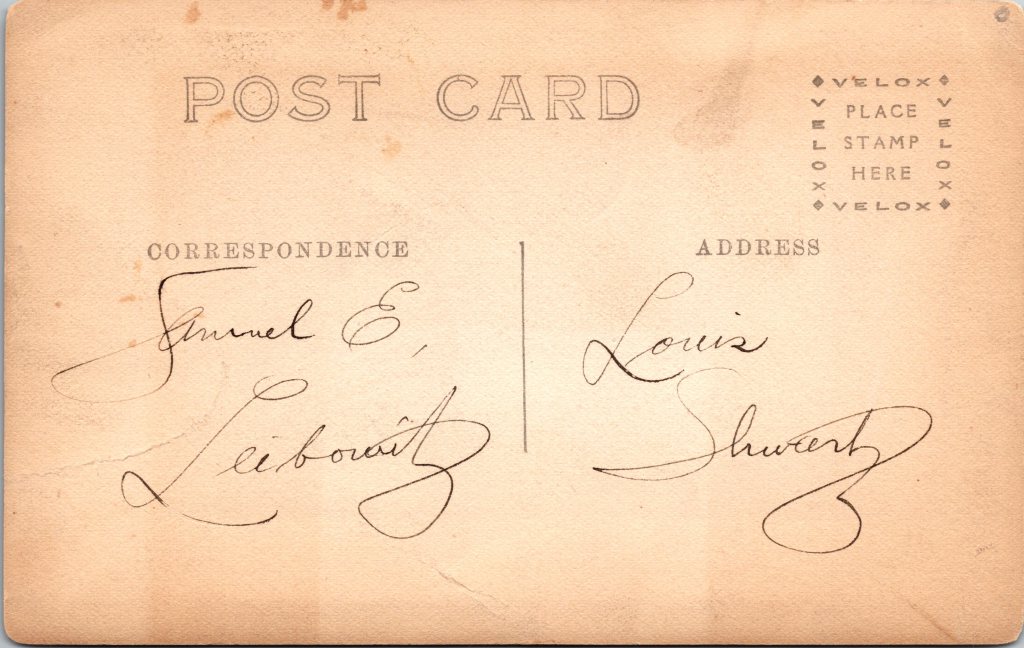 POST CARD
VELOX
VELOX
PLACE
STAMP
HERE
VELOX
VELOX
CORRESPONDENCE
ADDRESS
Samuel E.
Leibowitz
Louis
Shwartz